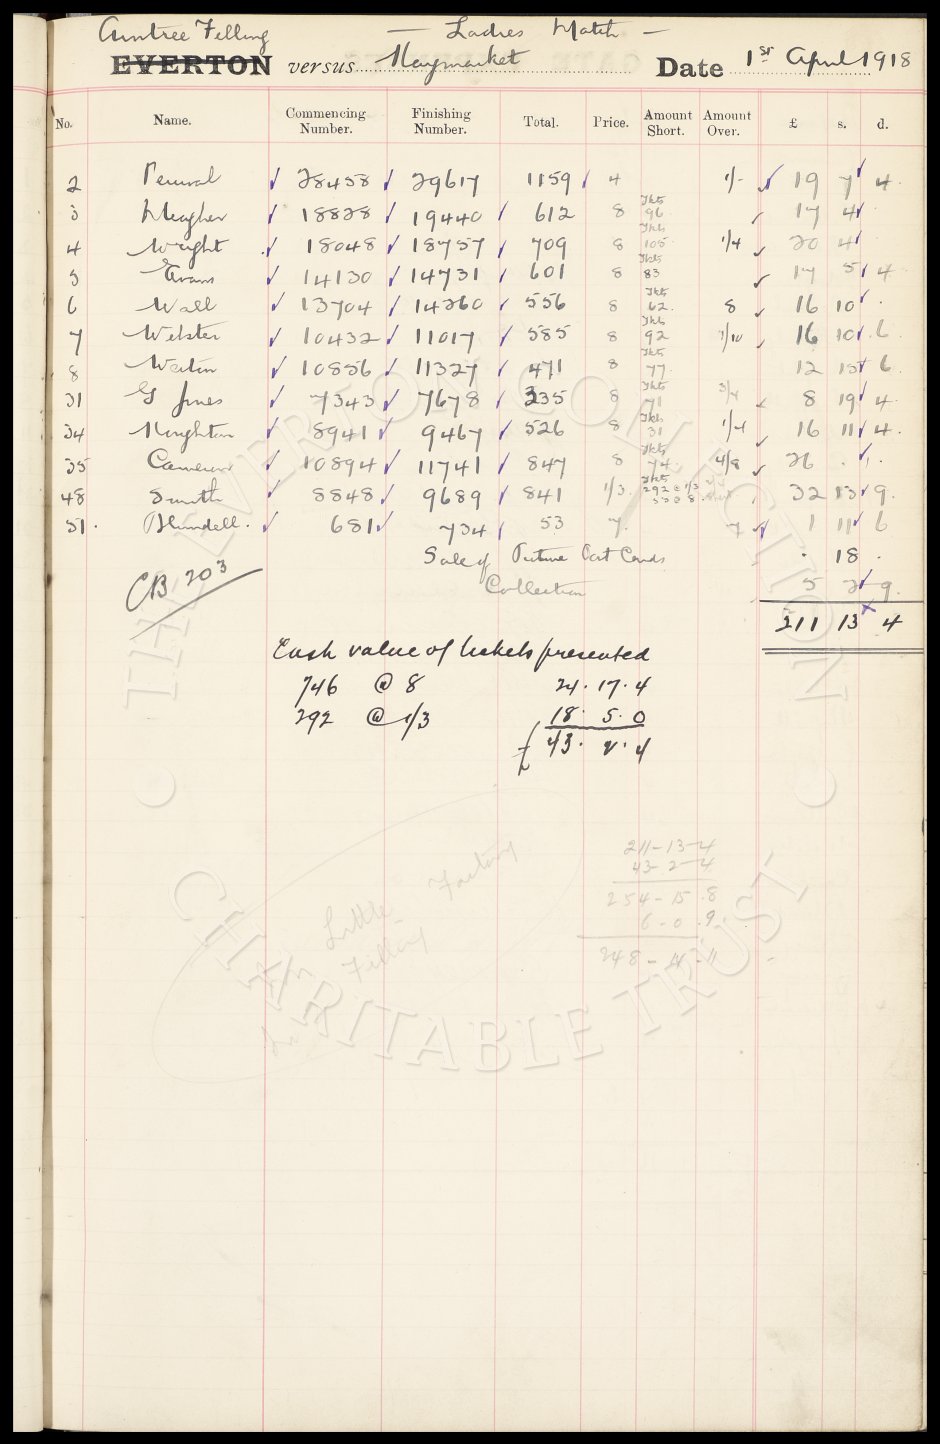 Aintree Filling — Ladies Match —
EVERTON versus Haymarket Date 1st April 1918
No. Name. Commencing Number. Finishing Number. Total. Price. Amount Short. Amount Over. £ s. d.
2 Percival 28458 29617 1159 4 1/- 19 7 4
3 Meagher 18828 19440 612 8 Tkts 96 17 4 .
4 Wright 18048 18757 709 8 Tkts 105 1/4 20 4
5 Evans 14130 14731 601 8 Tkts 83 17 5 4
6 Wall 13704 14260 556 8 Tkts 62 8 16 10 .
7 Webster 10432 11017 585 8 Tkts 92 1/10 16 10 6
8 Weston 10856 11327 471 8 Tkts 77 12 15 6
31 G Jones 7343 7678 335 8 Tkts 71 3/4 8 19 4
34 Houghton 8941 9467 526 8 Tkts 31 1/4 16 11 4
35 Cameron 10894 11741 847 8 Tkts 74 4/8 26 . .
48 Smith 8848 9689 841 1/3 Tkts 292 @ 1/3 53 @ 8 32 13 9
51 Blundell 681 734 53 7 7 1 11 6
Sale of Picture Post Cards . 18 .
Collection 5 2 9
CB 203
211 13 4
Cash value of tickets presented
746 @ 8 24. 17. 4
292 @ 1/3 18. 5. 0
£ 43. 2. 4
211-13-4
43-2-4
254-15.8
6-0.9
248-14-11
Little Factory
Filling
THE EVERTON COLLECTION
CHARITABLE TRUST